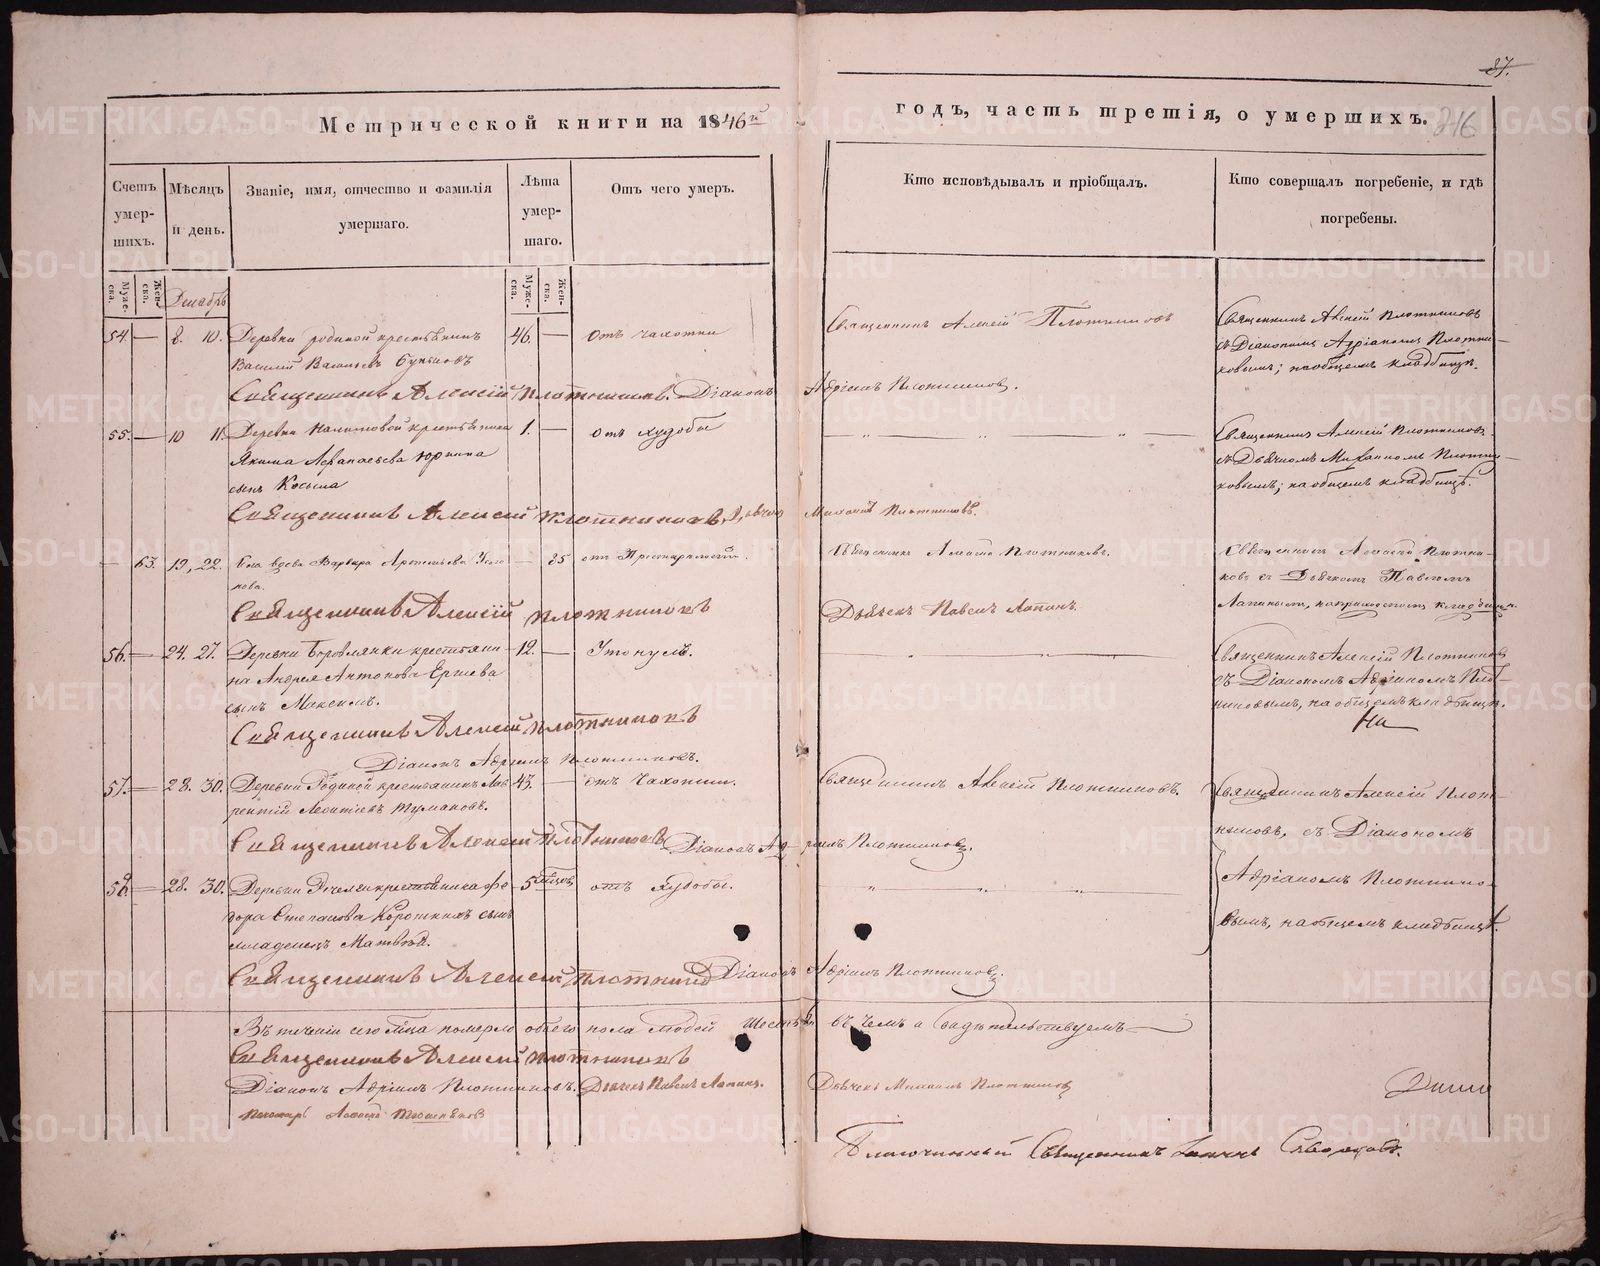 87.
Метрической книги на 1846й годъ, часть третія, о умершихъ. 216
Счетъ умер-шихъ.
Мѣсяцъ и день.
Званіе, имя, отчество и фамилія умершаго.
Лѣта умер-шаго.
Отъ чего умеръ.
Кто исповѣдывалъ и пріобщалъ.
Кто совершалъ погребеніе, и гдѣ погребены.
Муже-ска.
Жен-ска.
Декабрь
Муже-ска.
Жен-ска.
54. — 8. 10. Деревни Родиной крестьянинъ 46. — отъ чахотки Священникъ Алексій Плотниковъ Священникъ Алексій Плотниковъ
Василій Васильевъ съ Діакономъ Адріаномъ Плотни-
ковымъ; на общемъ кладбищѣ.
Священникъ Алексій Плотниковъ. Діаконъ Адріанъ Плотниковъ.
55. — 10 11. Деревни крестьянина 1. — отъ худобы — „ — „ — „ — Священникъ Алексій Плотниковъ
Якима Афанасьева Юркина съ Дьячкомъ Михаиломъ Плотни-
сынъ Косьма ковымъ; на общемъ кладбищѣ.
Священникъ Алексій Плотниковъ, Дьячекъ Михаилъ Плотниковъ.
— 63. 19, 22. вдова Варвара — 85 отъ Престарелости. Священникъ Алексій Плотниковъ. Священникъ Алексій Плотни-
кова. ковъ съ Дьячкомъ Павломъ
Лапинымъ, на приходскомъ кладбищѣ.
Священникъ Алексій Плотниковъ Дьячекъ Павелъ Лапинъ.
56. — 24. 27. Деревни Боровлянки крестьяни- 12. — Утонулъ. — „ — Священникъ Алексій Плотниковъ
на Андрея Антонова Ершева съ Діакономъ Адріаномъ Плот-
сынъ Максимъ. никовымъ, на общемъ кладбищѣ.
Священникъ Алексій Плотниковъ На
Діаконъ Адріанъ Плотниковъ.
57. — 28. 30. Деревни Родиной крестьянинъ Лав- 43. — отъ Чахотки. Священникъ Алексій Плотниковъ. Священникъ Алексій Плот-
рентій Леонтіевъ Тумаковъ. никовъ, съ Діакономъ
Священникъ Алексій Плотниковъ Діаконъ Адріанъ Плотниковъ.
58. — 28. 30. Деревни крестьянина Фе- 5 мѣсцовъ отъ худобы. — „ — „ — Адріаномъ Плотнико-
дора Степанова Короткихъ сынъ вымъ, на общемъ кладбищѣ.
младенецъ Матвѣй.
Священникъ Алексій Плотниковъ Діаконъ Адріанъ Плотниковъ.
Въ теченіи сего м͠ца померло обоего пола людей шесть въ чемъ и свидѣтельствуемъ —
Священникъ Алексій Плотниковъ
Діаконъ Адріанъ Плотниковъ. Дьячекъ Павелъ Лапинъ. Дьячекъ Михаилъ Плотниковъ
Пономарь Алексѣй
Благочинный Священникъ Іоаннъ Скворцовъ.
METRIKI.GASO-URAL.RU